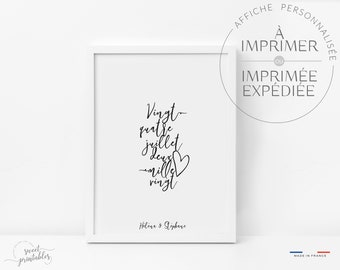 AFFICHE PERSONNALISÉE
À
IMPRIMER
ou
IMPRIMÉE
EXPÉDIÉE
Vingt
quatre
juillet
deux
mille
vingt
Hélène & Stéphane
sweet
printables
MADE IN FRANCE